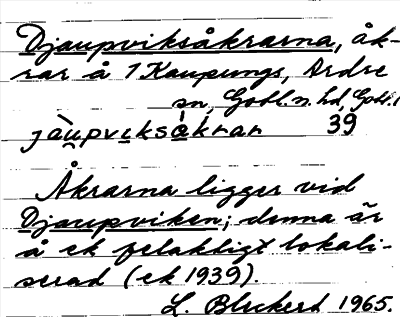 Djaupviksåkrarna, åk-
rar å 1 Kaupungs, Ardre
sn, Gotl. n. hd, Gotl. l
jàu̯pviksåkrar 39
Åkrarna ligger vid
Djaupviken; denna är
å ek felaktigt lokali-
serad (ek 1939).
L. Bleckert 1965.